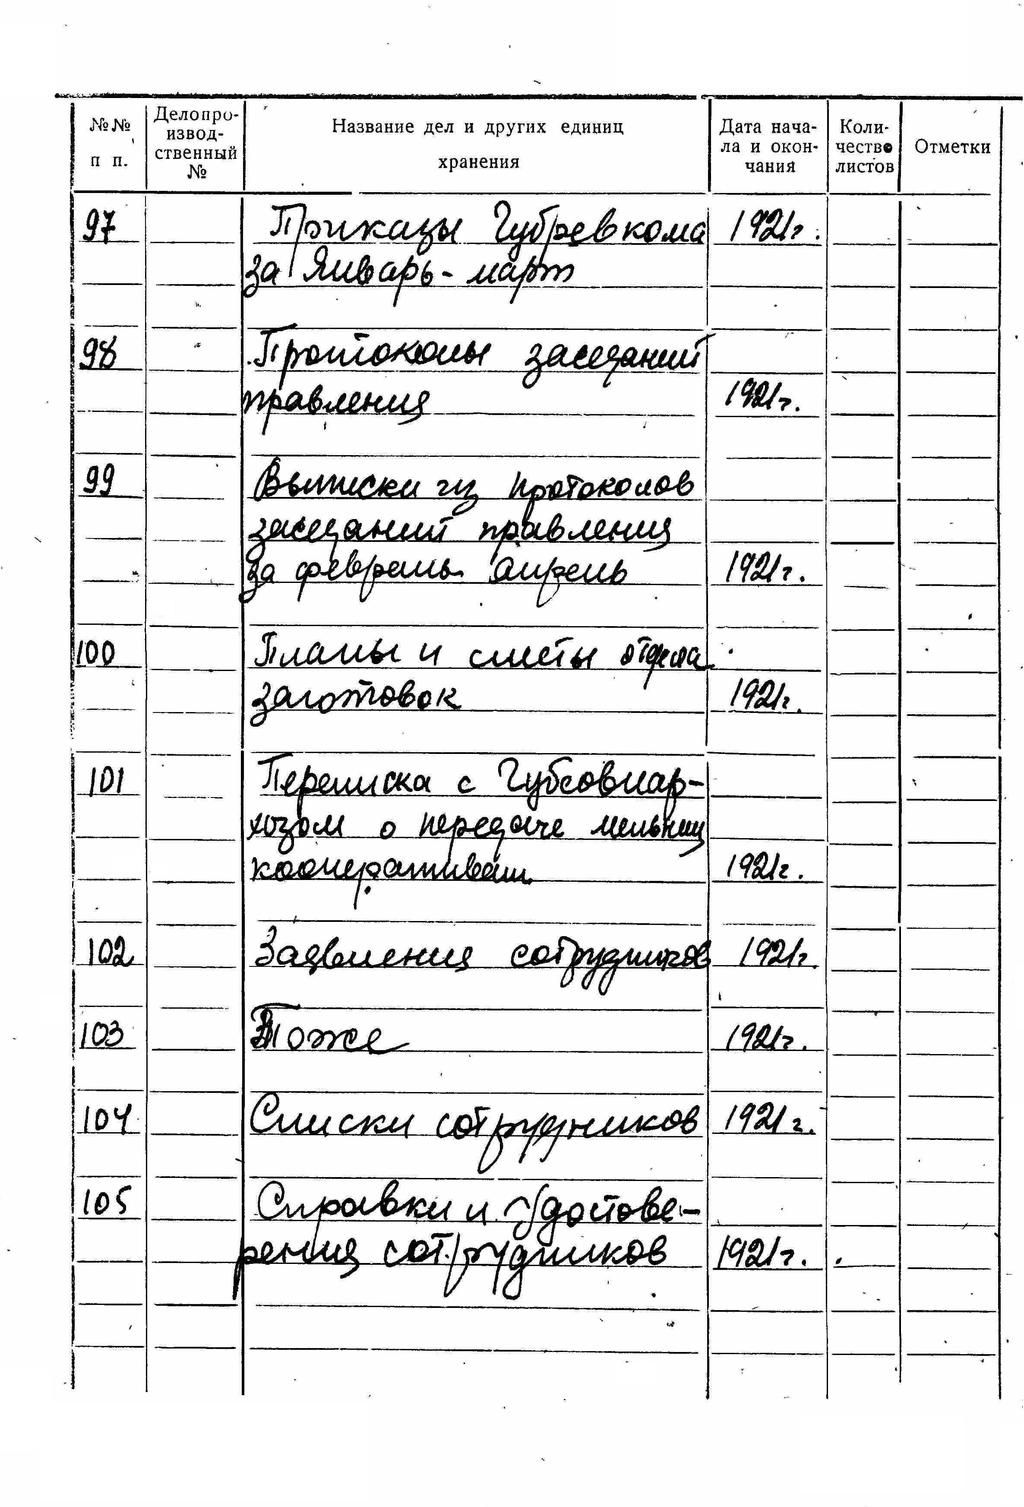 №№ п п.
Делопро-
извод-
ственный
№
Название дел и других единиц
хранения
Дата нача-
ла и окон-
чания
Коли-
чество
листов
Отметки
97 Приказы Губревкома 1921г.
за Январь - март
98 Протоколы заседаний
правления 1921г.
99 Выписки из протоколов
заседаний правления
за февраль апрель 1921г.
100 Планы и сметы отдела
заготовок 1921г.
101 Переписка с Губсовнар-
хозом о передаче мельниц
кооперативам 1921г.
102 Заявления сотрудников 1921г.
103 Тоже 1921г.
104 Списки сотрудников 1921г.
105 Справки и Удостове-
рения сотрудников 1921г.